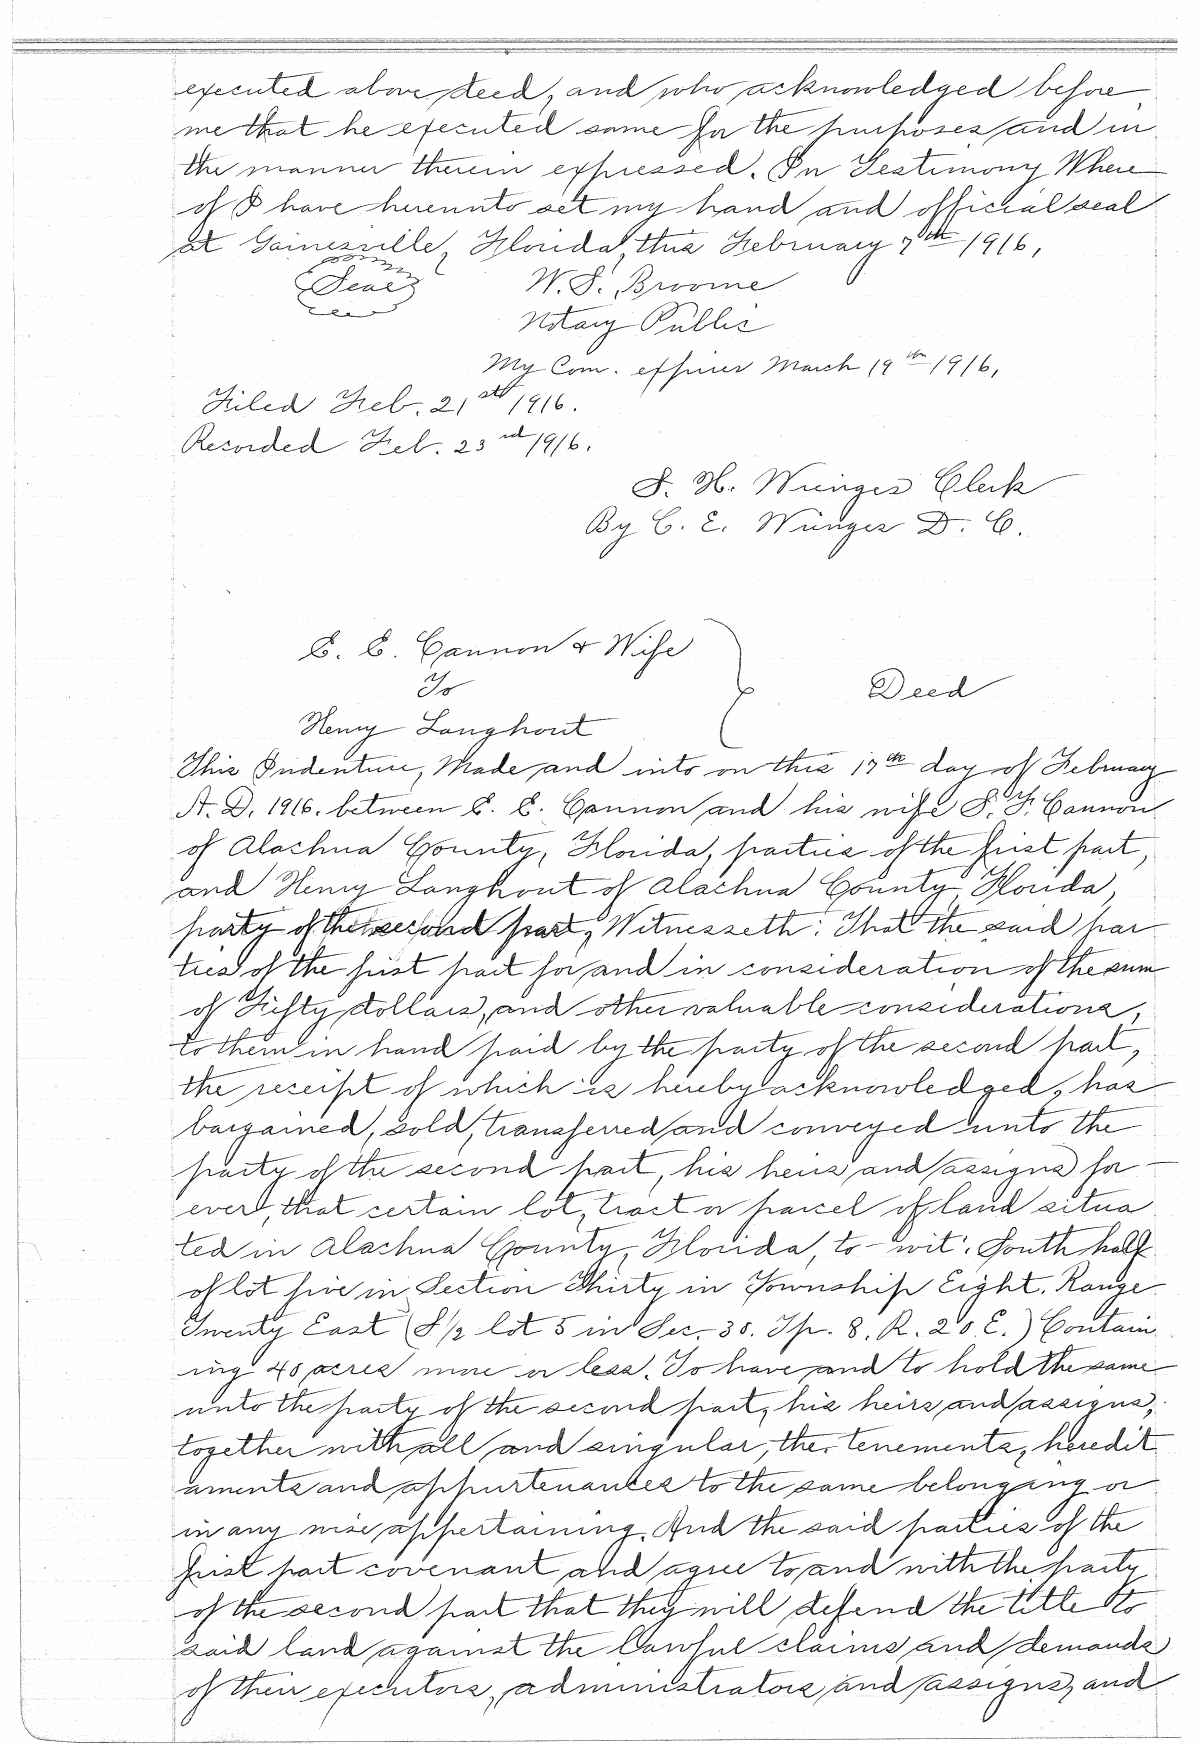 executed above deed, and who acknowledged before
me that he executed same for the purposes and in
the manner therein expressed. In Testimony Where
of I have hereunto set my hand and official seal
at Gainesville, Florida, this February 7th 1916,
Seal W. S. Broome
Notary Public
My Com. expires March 19th 1916,
Filed Feb. 21st 1916.
Recorded Feb. 23rd 1916.
S. H. Wienges Clerk
By C. E. Wienges D. C.
E. E. Cannon & Wife
To Deed
Henry Langhout
This Indenture, Made and into on this 17th day of February
A. D. 1916. between E. E. Cannon and his wife S. F. Cannon
of Alachua County, Florida, parties of the first part,
and Henry Langhout of Alachua County, Florida,
party of the second part, Witnesseth: That the said par
ties of the first part for and in consideration of the sum
of Fifty dollars, and other valuable considerations,
to them in hand paid by the party of the second part,
the receipt of which is hereby acknowledged, has
bargained, sold, transferred and conveyed unto the
party of the second part, his heirs and assigns for
ever, that certain lot, tract or parcel of land situa
ted in Alachua County, Florida, to-wit: South half
of lot five in Section Thirty in Township Eight. Range
Twenty East (S½ lot 5 in Sec. 30. Tp. 8. R. 20 E.) Contain
ing 40 acres more or less. To have and to hold the same
unto the party of the second part, his heirs and assigns,
together with all and singular, the tenements, heredit
aments and appurtenances to the same belonging or
in any wise appertaining. And the said parties of the
first part covenant and agree to and with the party
of the second part that they will defend the title to
said land against the lawful claims and demands
of their executors, administrators and assigns, and